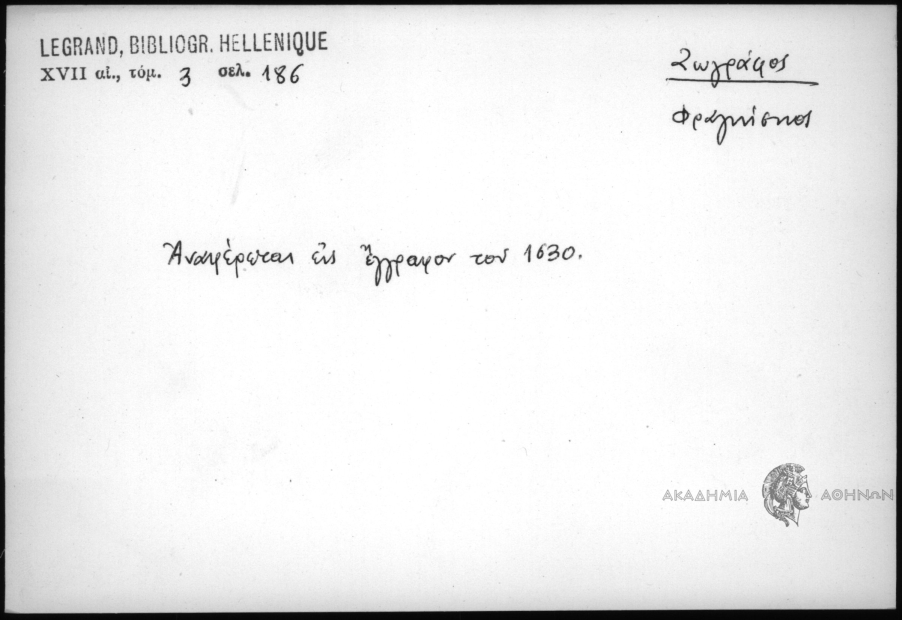 LEGRAND, BIBLIOGR. HELLENIQUE
XVII αἰ., τόμ. 3 σελ. 186
Ζωγράφος
Φραγκίσκος
Ἀναφέρεται εἰς ἔγγραφον τοῦ 1630.
ΑΚΑΔΗΜΙΑ ΑΘΗΝΩΝ